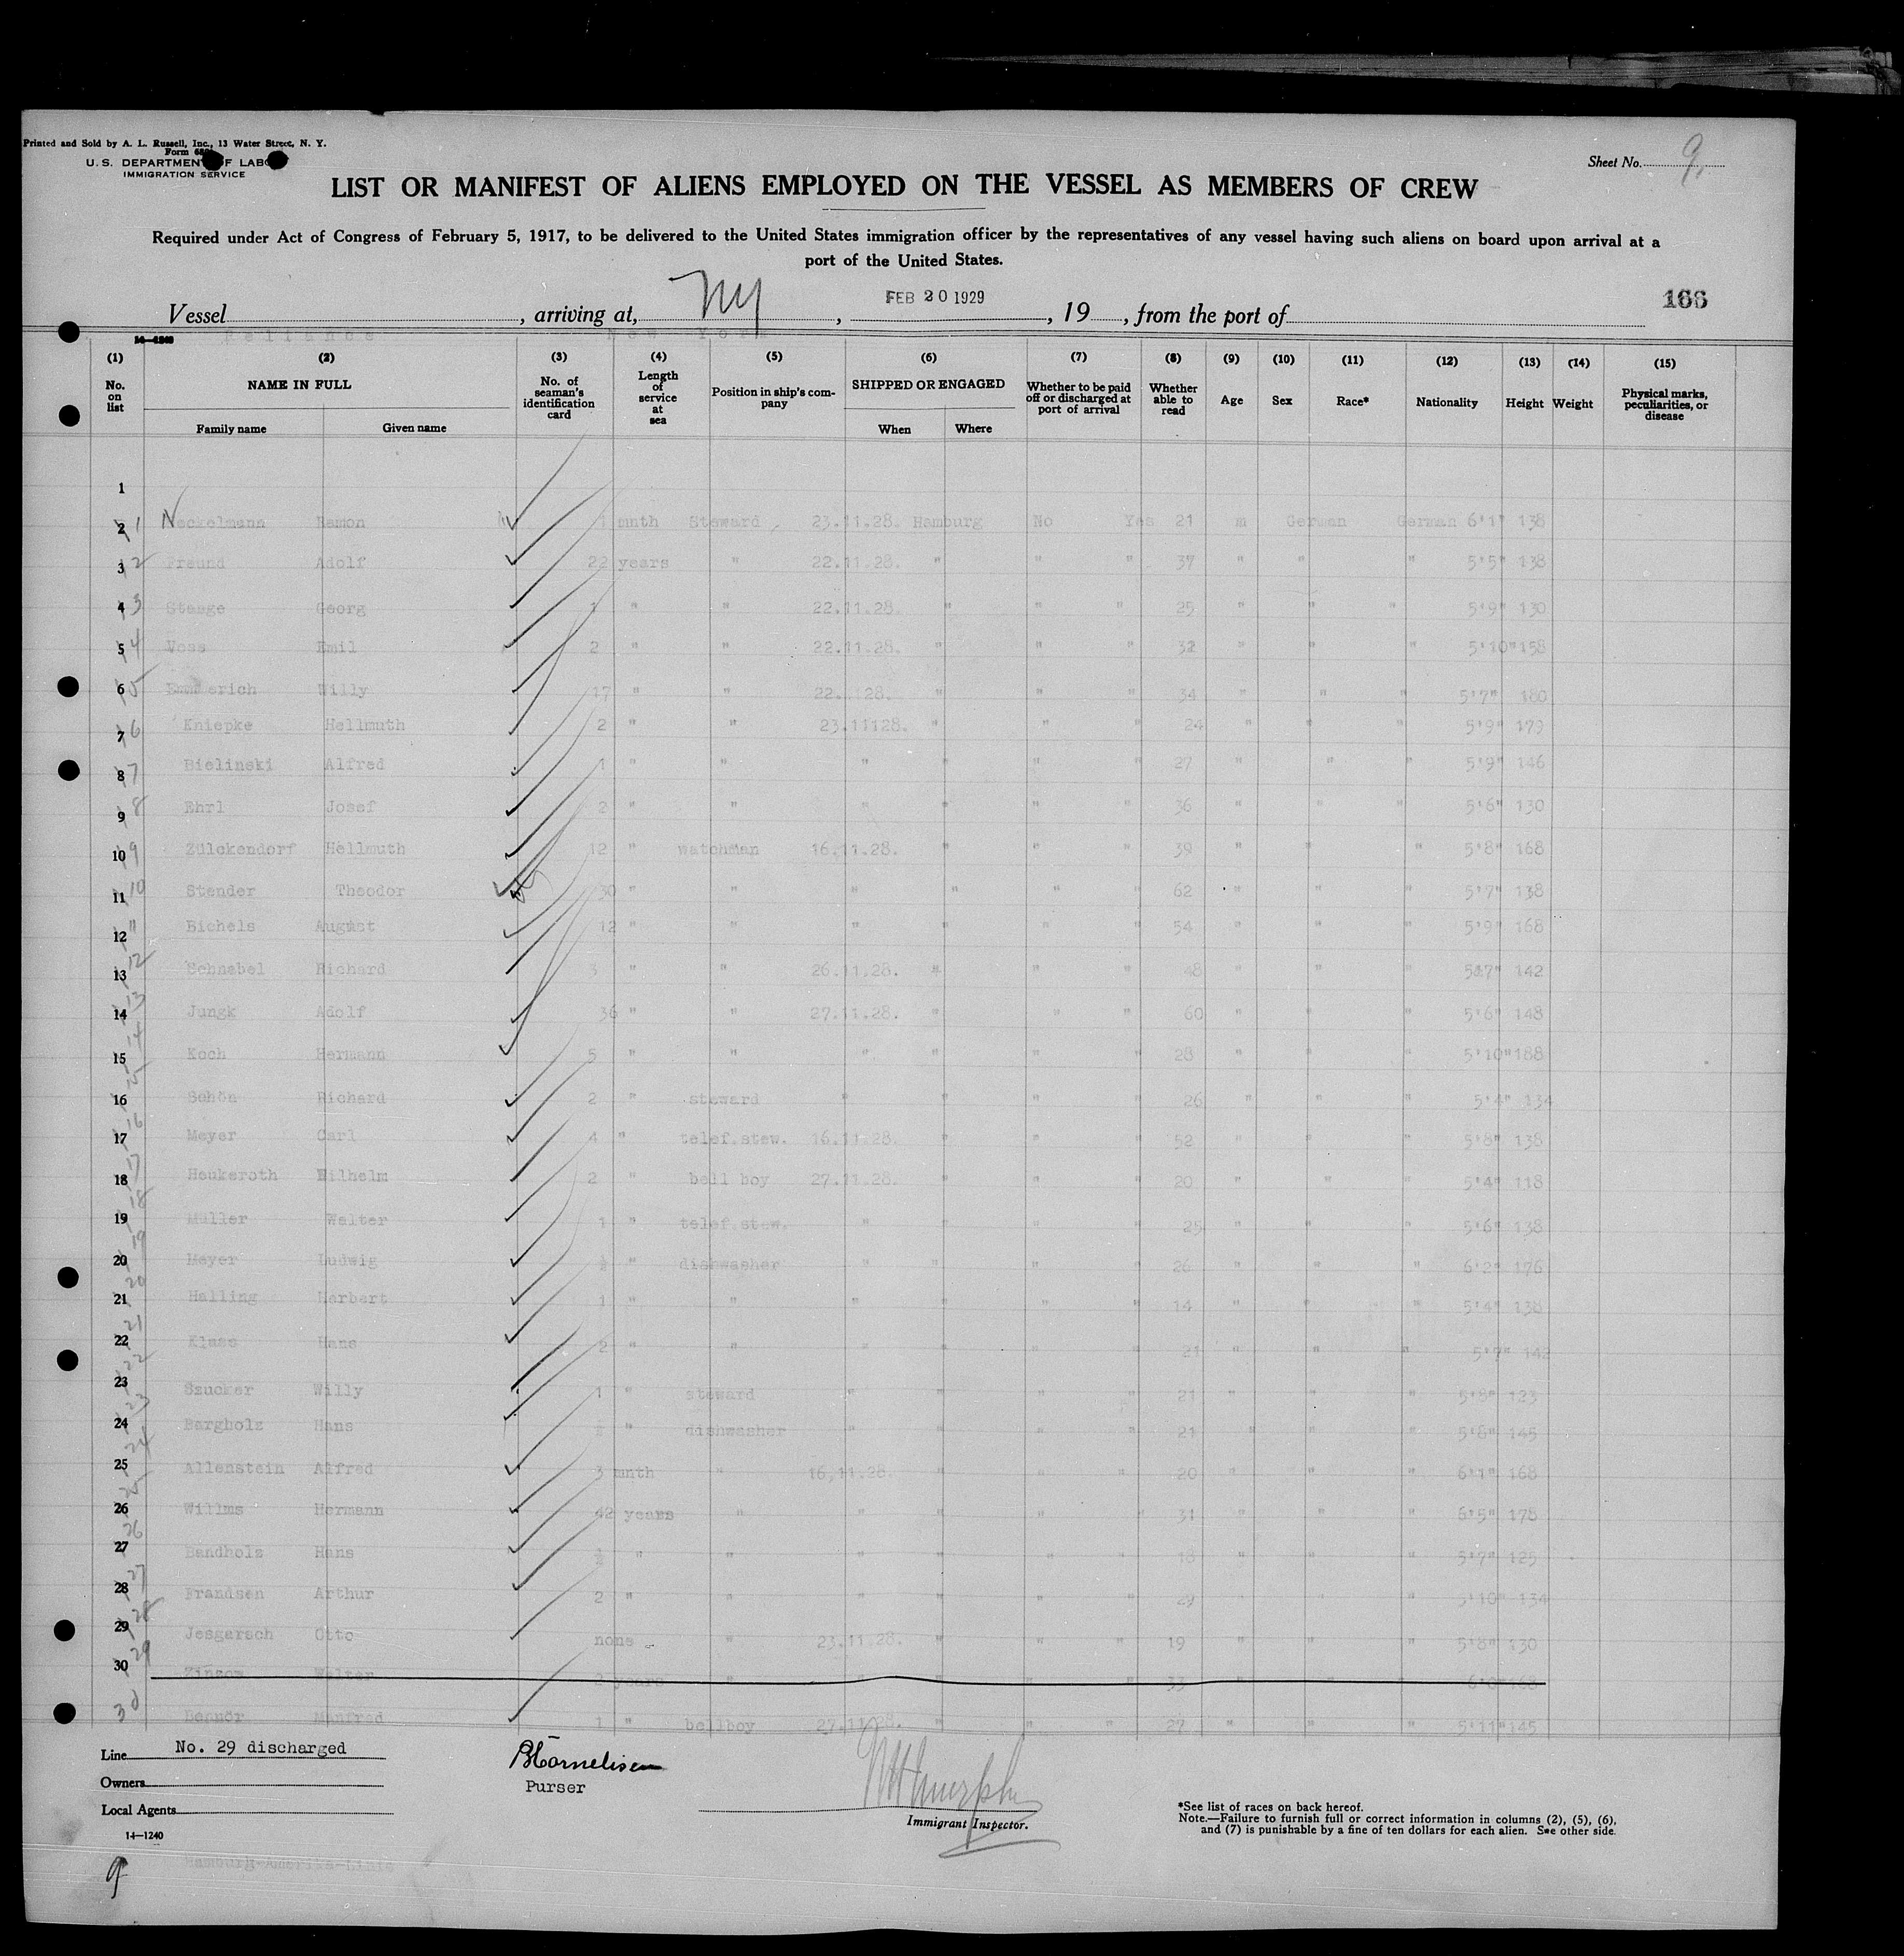 Printed and Sold by A. L. Russell, Inc., 13 Water Street, N. Y.
Form
U. S. DEPARTMENT OF LABOR
IMMIGRATION SERVICE
Sheet No. 9.
LIST OR MANIFEST OF ALIENS EMPLOYED ON THE VESSEL AS MEMBERS OF CREW
Required under Act of Congress of February 5, 1917, to be delivered to the United States immigration officer by the representatives of any vessel having such aliens on board upon arrival at a
port of the United States.
Vessel , arriving at, NY , FEB 20 1929 , 19 , from the port of 166
Reliance New York
14—1240
(1) (2) (3) (4) (5) (6) (7) (8) (9) (10) (11) (12) (13) (14) (15)
No. on list NAME IN FULL Family name Given name No. of seaman's identification card Length of service at sea Position in ship's company SHIPPED OR ENGAGED When Where Whether to be paid off or discharged at port of arrival Whether able to read Age Sex Race* Nationality Height Weight Physical marks, peculiarities, or disease
1
2 1 Neckelmann Ramon 1 mnth Steward 23.11.28. Hamburg No Yes 21 m German German 6'1" 138
3 2 Freund Adolf 22 years " 22.11.28. " " " 37 " " " 5'5" 138
4 3 Stange Georg 1 " " 22.11.28. " " " 25 " " " 5'9" 130
5 4 Voss Emil 2 " " 22.11.28. " " " 32 " " " 5'10" 158
6 5 Emmerich Willy 17 " " 22. 28. " " " 34 " " " 5'7" 180
7 6 Kniepke Hellmuth 2 " " 23.11128. " " " 24 " " " 5'9" 179
8 7 Bielinski Alfred 1 " " " " " " 27 " " " 5'9" 146
9 8 Ehrl Josef 2 " " " " " " 36 " " " 5'6" 130
10 9 Zülckendorf Hellmuth 12 " watchman 16.11.28. " " " 39 " " " 5'8" 168
11 10 Stender Theodor 30 " " " " " " 62 " " " 5'7" 138
12 11 Bichels August 12 " " " " " " 54 " " " 5'9" 168
13 12 Schnabel Richard 3 " " 26.11.28. " " " 48 " " " 5'7" 142
14 13 Jungk Adolf 36 " " 27.11.28. " " " 60 " " " 5'6" 148
15 14 Koch Hermann 5 " " " " " " 28 " " " 5'10" 188
16 15 Schön Richard 2 " steward " " " " 26 " " " 5'4" 134
17 16 Meyer Carl 4 " telef.stew. 16.11.28. " " " 52 " " " 5'8" 138
18 17 Heukeroth Wilhelm 2 " bell boy 27.11.28. " " " 20 " " " 5'4" 118
19 18 Müller Walter 1 " telef.stew. " " " " 25 " " " 5'6" 138
20 19 Meyer Ludwig ½ " dishwasher " " " " 26 " " " 6'2" 176
21 20 Halling Herbert 1 " " " " " " 14 " " " 5'4" 138
22 21 Klaas Hans 2 " " " " " " 21 " " " 5'7" 142
23 22 Szucker Willy 1 " steward " " " " 21 " " " 5'8" 123
24 23 Bargholz Hans ½ " dishwasher " " " " 21 " " " 5'8" 145
25 24 Allenstein Alfred 3 mnth " 16,11.28. " " " 20 " " " 6'1" 168
26 25 Willms Hermann 42 years " " " " " 31 " " " 6'5" 178
27 26 Bandholz Hans ½ " " " " " " 18 " " " 5'7" 125
28 27 Frandsen Arthur 2 " " " " " " 29 " " " 5'10" 134
29 28 Jesgarsch Otto none " 23.11.28. " " " 19 " " " 5'8" 130
30 29 Walter 2 years " " " " " 33 " " " 6'0" 168
30 Manfred 1 " bellboy 27.11.28. " " " 27 " " " 5'11" 145
Line No. 29 discharged
Owners
Local Agents
14—1240
BCornelisen
Purser
Immigrant Inspector.
*See list of races on back hereof.
Note.—Failure to furnish full or correct information in columns (2), (5), (6), and (7) is punishable by a fine of ten dollars for each alien. See other side.
9
Hamburg-Amerika-Linie